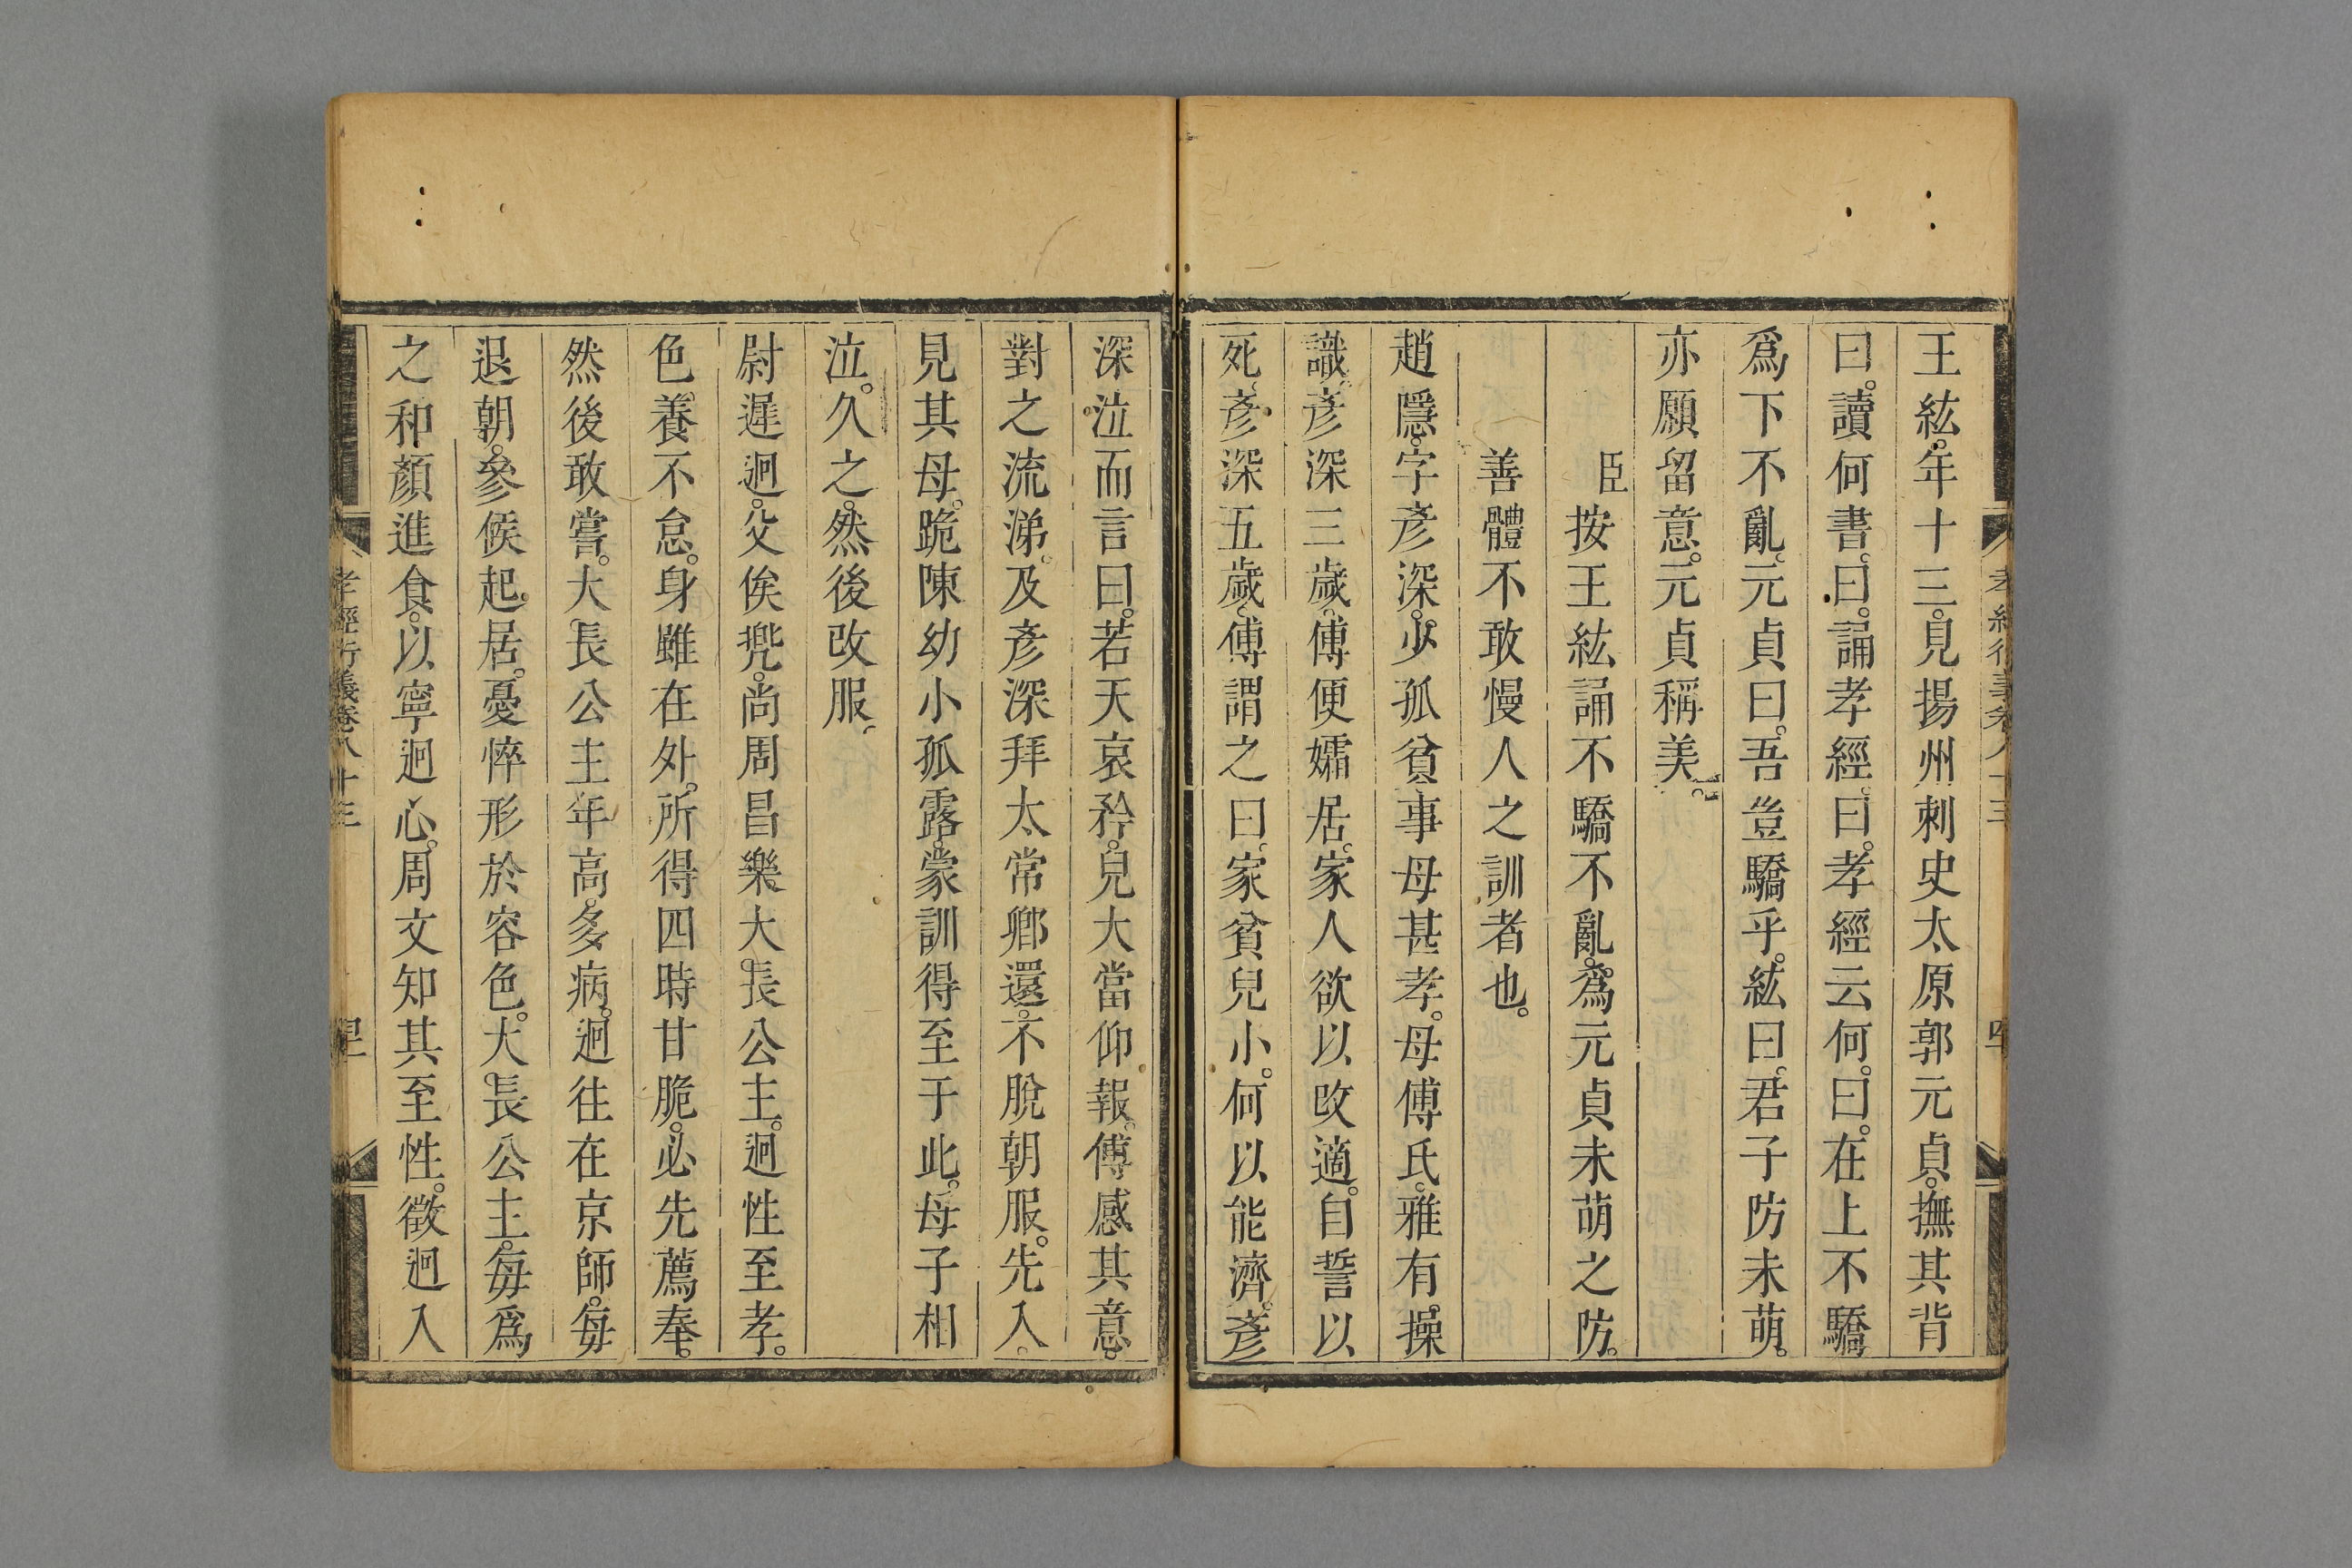 王紘。年十三。見揚州刺史太原郭元貞。撫其背
曰。讀何書。曰。誦孝經。曰。孝經云何。曰。在上不驕
爲下不亂。元貞曰。吾豈驕乎。紘曰。君子防未萌。
亦願留意。元貞稱美。
臣按王紘誦不驕不亂。爲元貞未萌之防。
善體不敢慢人之訓者也。
趙隱。字彥深。少孤貧。事母甚孝。母傅氏。雅有操
識。彥深三歲。傅便孀居。家人欲以改適。自誓以
死。彥深五歲。傅謂之曰。家貧兒小。何以能濟。彥
深泣而言曰。若天哀矜。兒大當仰報。傅感其意。
對之流涕。及彥深拜太常卿還。不脫朝服。先入。
見其母。跪陳幼小孤露。蒙訓得至于此。母子相
泣。久之。然後改服。
尉遲迥。父俟兜。尚周昌樂大長公主。迥性至孝。
色養不怠。身雖在外。所得四時甘脆。必先薦奉。
然後敢嘗。大長公主年高多病。迥往在京師。每
退朝。參候起居。憂悴形於容色。大長公主。每爲
之和顏進食。以寧迥心。周文知其至性。徵迥入
孝經衍義卷八十三